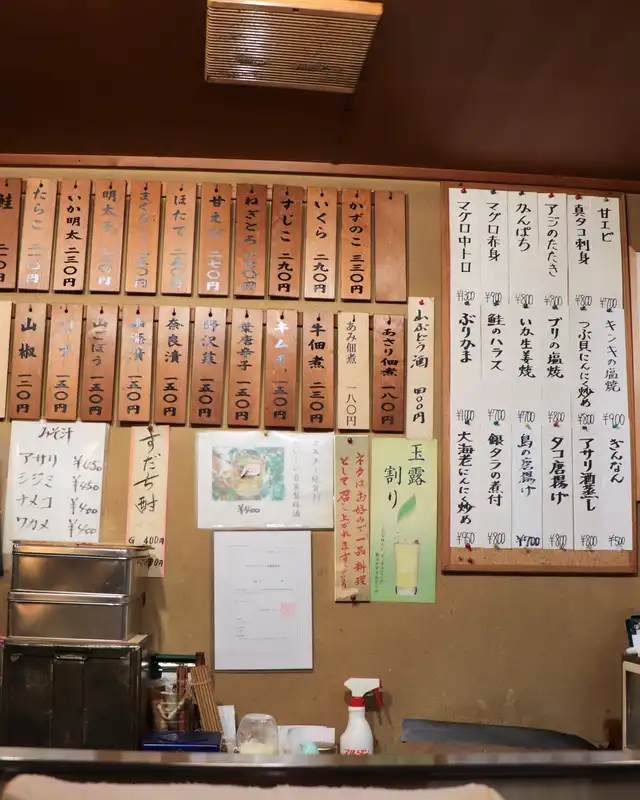 鮭
たらこ
いか明太 二三〇円
明太子
まぐろ
ほたて 二五〇円
甘えび 二七〇円
ねぎとろ
すじこ 二九〇円
いくら 二九〇円
かずのこ 三三〇円
山椒 一三〇円
一五〇円
山ごぼう 一五〇円
一五〇円
奈良漬 一五〇円
野沢菜 一五〇円
葉唐辛子 一五〇円
キムチ 一五〇円
牛佃煮 二三〇円
あみ佃煮 一八〇円
あさり佃煮 一八〇円
山ぶどう酒 四〇〇円
みそ汁
アサリ ¥450
シジミ ¥450
ナメコ ¥400
ワカメ ¥400
すだち酎
G 400A
¥400
ネタはお好みで一品料理
として召し上がれます
玉露
割り
甘エビ ¥700
真タコ刺身 ¥800
アジのたたき ¥800
かんぱち ¥800
マグロ赤身 ¥900
マグロ中トロ ¥1300
キンキの塩焼 ¥900
つぶ貝にんにく炒め ¥800
ブリの塩焼 ¥800
いか生姜焼 ¥700
鮭のハラス ¥700
ぶりかま ¥1000
ぎんなん ¥500
アサリ酒蒸し ¥800
タコ唐揚げ ¥800
鳥の唐揚げ ¥700
銀タラの煮付 ¥800
大海老にんにく炒め ¥950